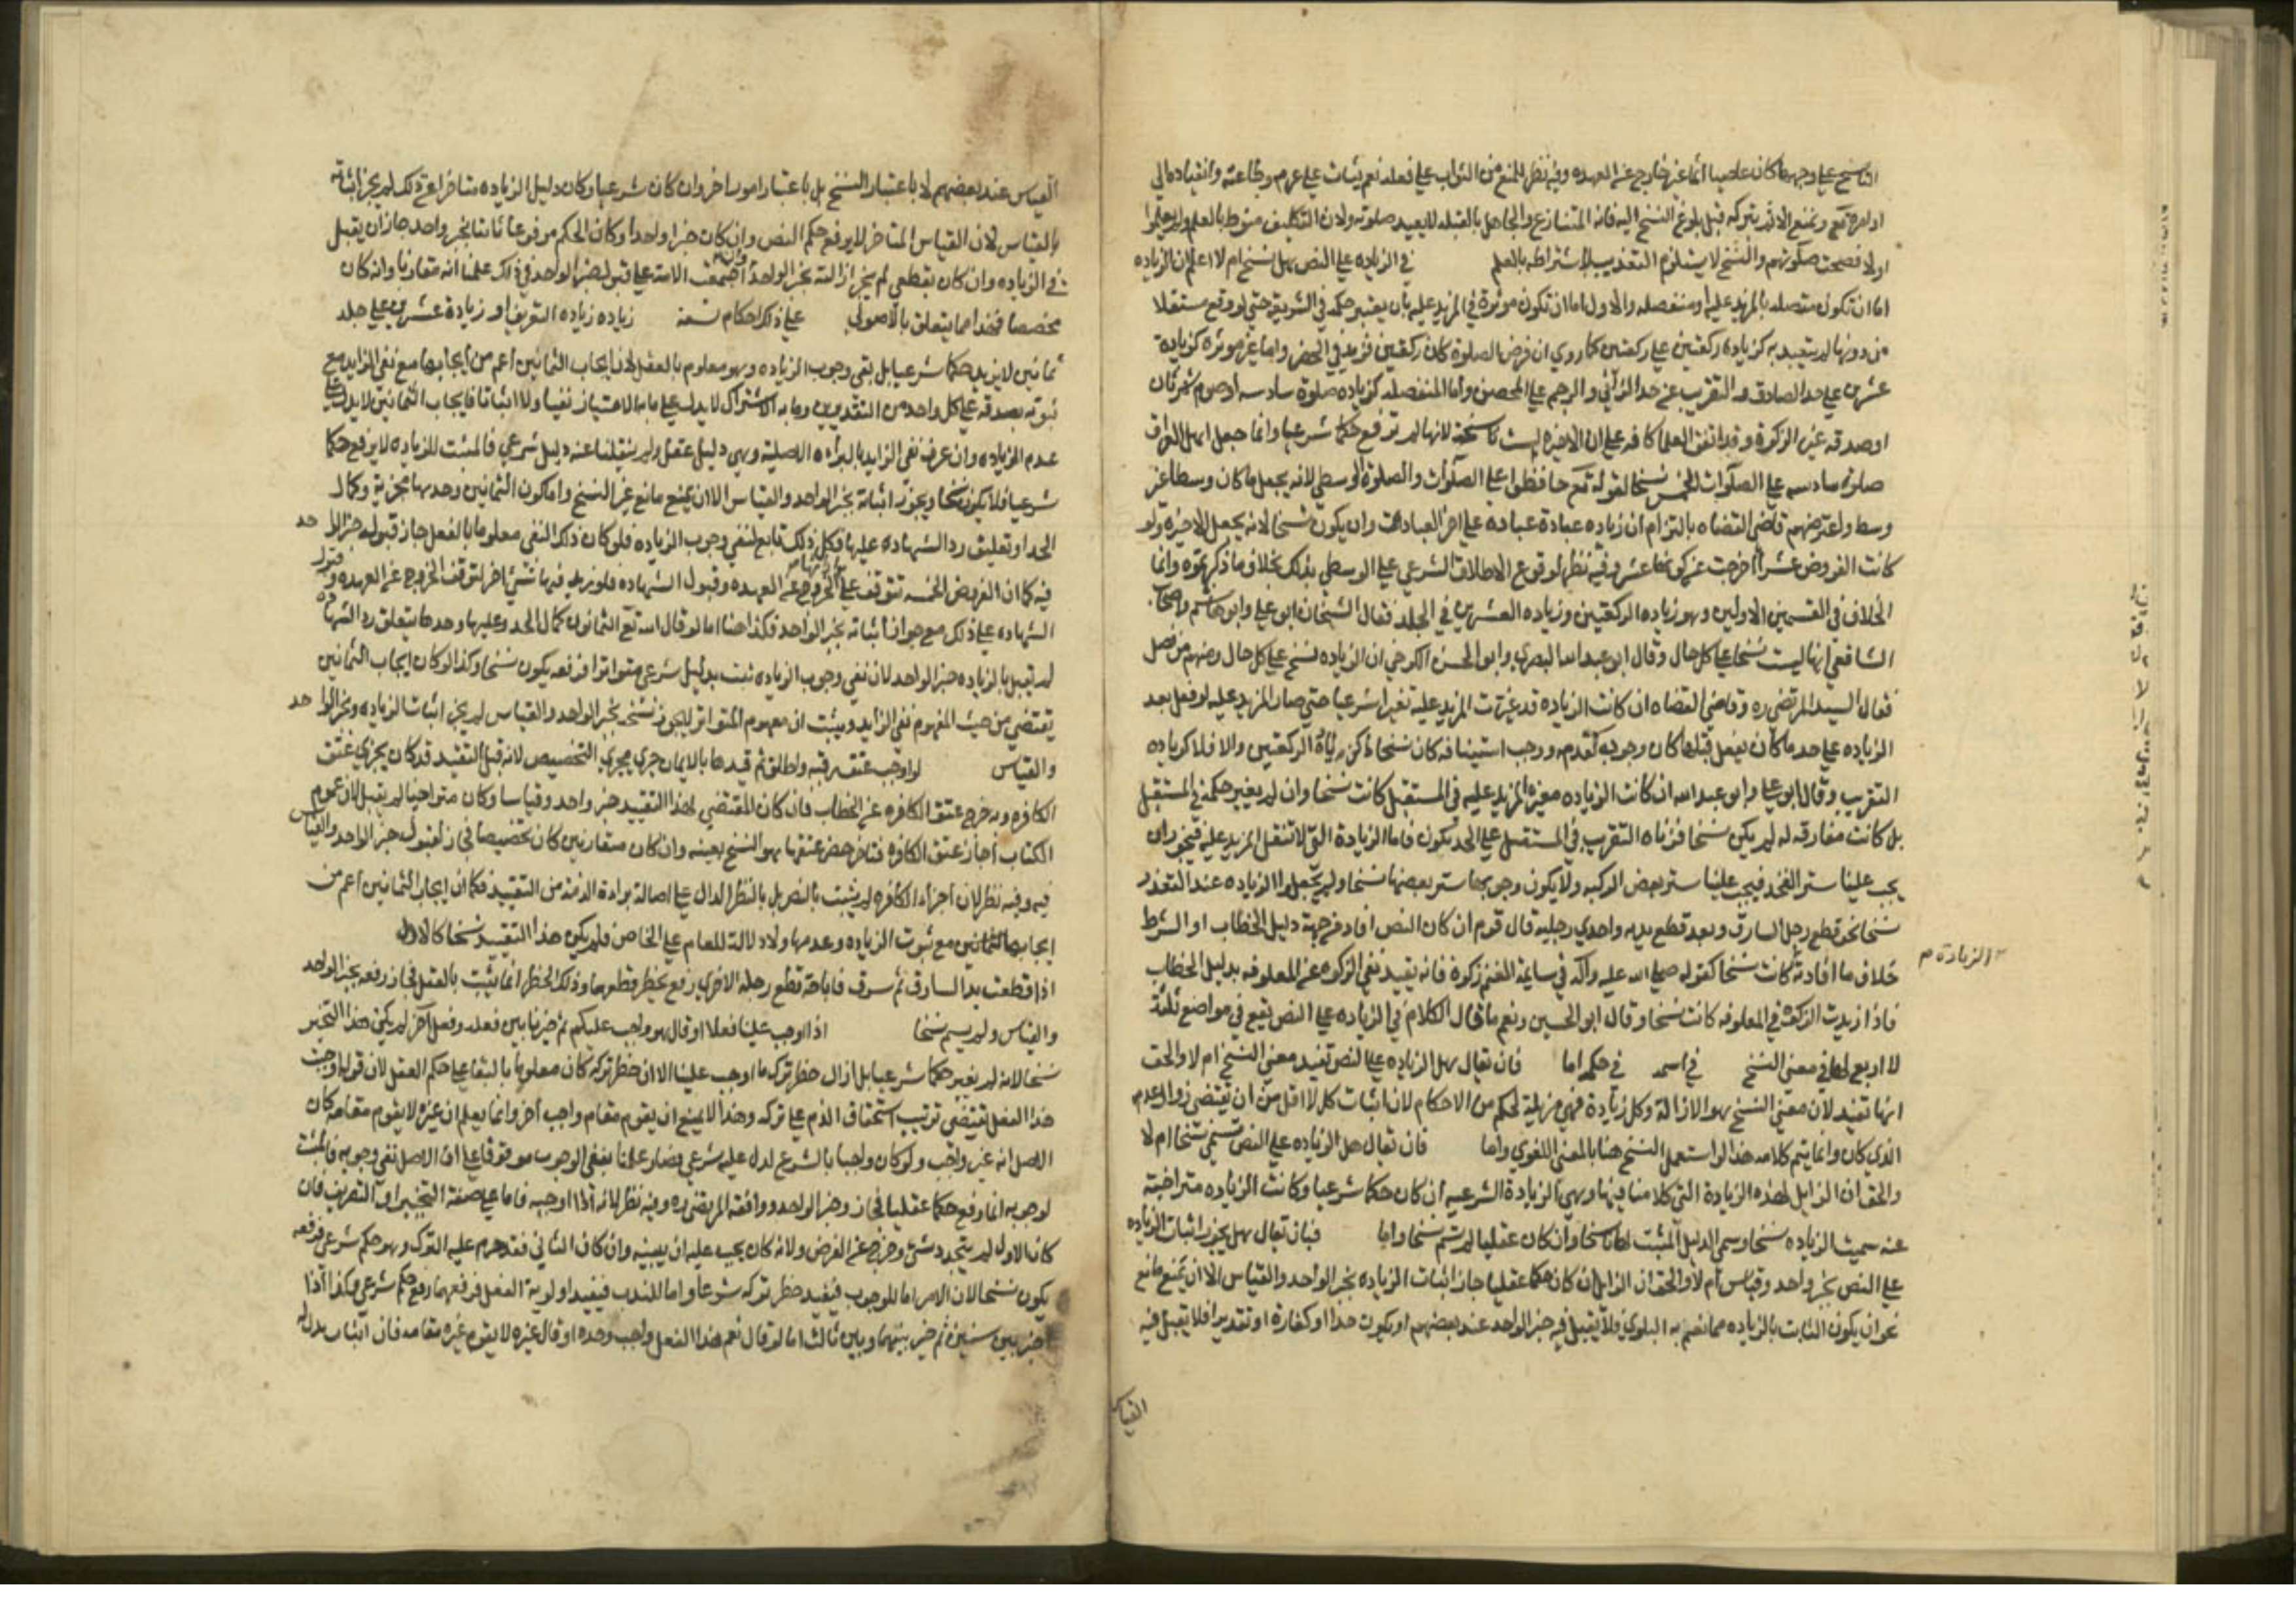 الناسخ على وجهه ما كان عاصيا آثما غير خارج عن العهده وفيه نظر للمنع من الثواب على فعله نعم يثاب على عزمه وطاعته وانقياده الى
اوامره تع ونمنع الاثم بتركه قبل بلوغ النسخ اليه فانه المتنازع والجاهل بالقبله لا يعيد صلوته ولان التكليف منوط بالعلم ولم يعلموا
اولا فصحت صلوتهم والنسخ لا يستلزم التعذيب لاشتراطه بالعلم في الزياده على النص هل نسخ ام لا اعلم ان الزياده
اما ان تكون متصله بالمزيد عليه او منفصله والاول اما ان تكون موثرة في المزيد عليه بان يغير حكمه في الشريعة حتى لو وقع مستقلا
من دونها لم يتعبد به كزياده ركعتين على ركعتين كما روي ان فرض الصلوة كان ركعتين فزيد في الحضر واما غير موثره كزيادة
عشرين على حد القاذف والتغريب على حد الزاني والرجم على المحصن واما المنفصله كزياده صلوة سادسه او صوم شهر ثان
او صدقه غير الزكوة وقد اتفق العلما كافه على ان الاخيره ليست ناسخة لانها لم ترفع حكما شرعيا وانما جعل اهل العراق
صلوة سادسه على الصلوات الخمس نسخا لقوله تع حافظوا على الصلوات والصلوة الوسطى لانه يجعل ما كان وسطا غير
وسط واعترضهم قاضي القضاه بالتزام ان زياده عبادة على اخر العبادات وان يكون نسخا لانه يجعل الاخيره ولو
كانت الفروض عشرا اخرجت عن كونها عشر وفيه نظر لوقوع الاطلاق الشرعي على الوسطى بذلك بخلاف ما ذكرتموه وانما
الخلاف في القسمين الاولين وهو زياده الركعتين وزياده العشرين في الجلد فقال الشيخان ابو علي وابو هاشم واصحاب
الشافعي انها ليست نسخا على كل حال وقال ابو عبد الله البصري وابو الحسن الكرخي ان الزياده نسخ على كل حال ومنهم من فصل
فقال السيد المرتضى ره وقاضي القضاه ان كانت الزياده قد غيرت المزيد عليه تغيرا شرعيا حتى صار المزيد عليه لو فعل بعد
الزياده على حد ما كان يفعل قبلها كان وجوده كعدمه ووجب استينافه كان نسخا كزيادة الركعتين والا فلا كزياده
التغريب وقال ابو علي وابو عبد الله ان كانت الزياده مغيره للمزيد عليه في المستقبل كانت نسخا وان لم يغير حكمه في المستقبل
بل كانت مقارقه له لم يكن نسخا فزياده التغريب في المستقبل على الحد تكون فاما الزيادة التي لا تنقل المزيد عليه فيجوز ان
يجب علينا ستر الفخذ فيجب علينا ستر بعض الركبه ولا يكون وجوبها ستر بعضها نسخا ولم يجعلوا الزياده عند التعذر
نسخا نحو قطع رجل السارق وبعد قطع يديه واحدى رجليه قال قوم ان كان النص افاد من جهة دليل الخطاب او الشرط
خلاف ما افادته كانت نسخا كقوله صلى الله عليه وآله في سايمة الغنم زكوة فانه يفيد نفي الزكوه عن المعلوفه بدليل الخطاب
الزيادة م
فاذا زيدت الزكوة في المعلوفه كانت نسخا وقال ابو الحسين ونعم ما قال الكلام في الزياده على النص يقع في مواضع ثلثة
في معنى النسخ في اسمه في حكمه اما فان يقال هل الزياده على النص تفيد معنى النسخ ام لا والحق
انها تفيد لان معنى النسخ هو الازالة وكل زيادة فهي مزيلة لحكم من الاحكام لان اثبات كل لا اقل من ان يقتضي زوال عدمه
الذي كان وانما يتم كلامه هذا لو استعمل النسخ هنا بالمعنى اللغوي واما فان يقال هل الزياده على النص تسمى نسخا ام لا
والحق ان الزايل لهذه الزيادة التي كلامنا فيها وهي الزيادة الشرعيه ان كان حكما شرعيا وكانت الزياده متراخية
عنه سميت الزياده نسخا وسمي الدليل المثبت لها ناسخا وان كان عقليا لم تسم نسخا واما فبان يقال هل يجوز اثبات الزياده
على النص بخبر واحد وقياس ام لا والحق ان الزايل ان كان حكما عقليا جاز اثبات الزياده بخبر الواحد والقياس الا ان يمنع مانع
نحو ان يكون الثابت بالزياده مما تعم به البلوى فلا يقبل فيه خبر الواحد عند بعضهم او يكون حدا او كفارة او تقديرا فلا يقبل فيه
القياس
القياس عند بعضهم لا باعتبار النسخ بل باعتبار امور اخر وان كان شرعيا وكان دليل الزياده متاخرا عن ذلك لم يجز اثباته
بالقياس لان القياس المتاخر لا يرفع حكم النص وان كان خبرا واحدا وكان الحكم مرفوعا ثابتا بخبر واحد جاز ان يقبل
في الزياده وان كان بقطعي لم يجز ازالته بخبر الواحد وان اجتمعت الامة على قبول خبر الواحد في ذلك علمنا انه مقارنا وانه كان
مخصصا فهذا مما يتعلق بالاصول على ذلك احكام تسعة زياده التغريب او زيادة عشرين على جلد
ثمانين لا يزيل حكما شرعيا بل نفى وجوب الزياده وهو معلوم بالعقل لان ايجاب الثمانين اعم من ايجابها مع نفي الزايد ومع
ثبوته بصدقه على كل واحد من التقديرين وما به الاشتراك لا يدل على ما به الامتياز نفيا ولا اثباتا فايجاب الثمانين لا يدل على
عدم الزياده وان عرف نفي الزايد بالبراءه الاصلية وهي دليل عقلي ولم ينقلنا عنه دليل شرعي فالمثبت للزياده لا يرفع حكما
شرعيا فلا يكون نسخا ويجوز اثباته بخبر الواحد والقياس الا ان يمنع مانع غير النسخ واما كون الثمانين وحدها مجزية وكمال
الحد او تعليق رد الشهاده عليها فكل ذلك تابع لنفي وجوب الزياده فلو كان ذلك النفي معلوما بالعقل جاز قبول خبر الواحد
فيه كما ان الفروض الخمسه تتوقف على الخروج عن العهده وقبول الشهاده فلو زيد فيها شئ اخر لتوقف الخروج عن العهده وقبول
الشهاده على ذلك مع جواز اثباته بخبر الواحد فكذا هنا اما لو قال الله تع الثمانون كمال الحد وعليها وحدها يتعلق رد الشهاده
لم يقبل بالزياده خبر الواحد لان نفي وجوب الزياده ثبت بدليل شرعي متواتر فرفعه يكون نسخا وكذا لو كان ايجاب الثمانين
يقتضي من حيث المفهوم نفي الزايد ويثبت ان مفهوم المتواتر لا يجوز نسخه بخبر الواحد والقياس لم يجز اثبات الزياده بخبر الواحد
والقياس لو اوجب عتق رقبه واطلق ثم قيدها بالايمان جرى مجرى التخصيص لانه قبل التقيد قد كان يجزي عتق
الكافره وبه خرج عتق الكافره عن الخطاب فان كان المقتضي لهذا التقييد خبر واحد وقياسا وكان متراخيا لم يقبل لان عموم
الكتاب اجاز عتق الكافره فتاخر حظر عتقها هو النسخ بعينه وان كان متقارنين كان تخصيصا فجاز قبول خبر الواحد والقياس
فيه وفيه نظر لان اجزاء الكافره لم يثبت بالنص بل بالنظر الدال على اصالة براءة الذمة من التقييد فكما ان ايجاب الثمانين اعم من
ايجابها مع ثبوت الزياده وعدمها ولا دلالة للعام على الخاص فلم يكن هذا التقييد نسخا كالاول
اذا قطعت يد السارق ثم سرق فاباحة قطع رجله الاخرى رفع حظر قطعها وذلك الحظر انما يثبت بالعقل فجاز رفعه بخبر الواحد
والقياس ولم يسم نسخا اذا اوجب علينا فعلا او قال هو واجب عليكم ثم خيرنا بين فعله وفعل آخر لم يكن هذا التخير
نسخا لانه لم يغير حكما شرعيا بل ازال حظر ترك ما اوجب علينا الا ان حظر تركه كان معلوما بالبقا على حكم العقل لان قوله اوجبت
هذا الفعل يقتضي ترتيب استحقاق الذم على تركه وهذا لا يمنع ان يقوم مقام واجب آخر وانما يعلم ان غيره لا يقوم مقامه كان
الاصل انه غير واجب ولو كان واجبا بالشرع لدل عليه شرعي فصار علمنا بنفي الوجوب موقوفا على ان الاصل نفي وجوبه فالمثبت
لوجوبه انما رفع حكما عقليا فجاز بخبر الواحد ووافقه المرتضى ره وفيه نظر لانه اذا اوجبه فاما على صفة التخيير او التعيين فان
كان الاول لم يتجدد شئ وخرج عن الفرض ولانه كان يجب عليه ان يبينه وان كان الثاني فقد حرم عليه الترك وهو حكم شرعي فرفعه
يكون نسخا لان الامر اما للوجوب فيفيد حظر تركه شرعا واما للندب فيفيد اولوية الفعل فرفعهما رفع حكم شرعي وكذا اذا
خير بين شيئين ثم خير بينهما وبين ثالث اما لو قال نعم هذا الفعل واجب وحده او قال غيره لا يقوم غيره مقامه فان اثبات بدله